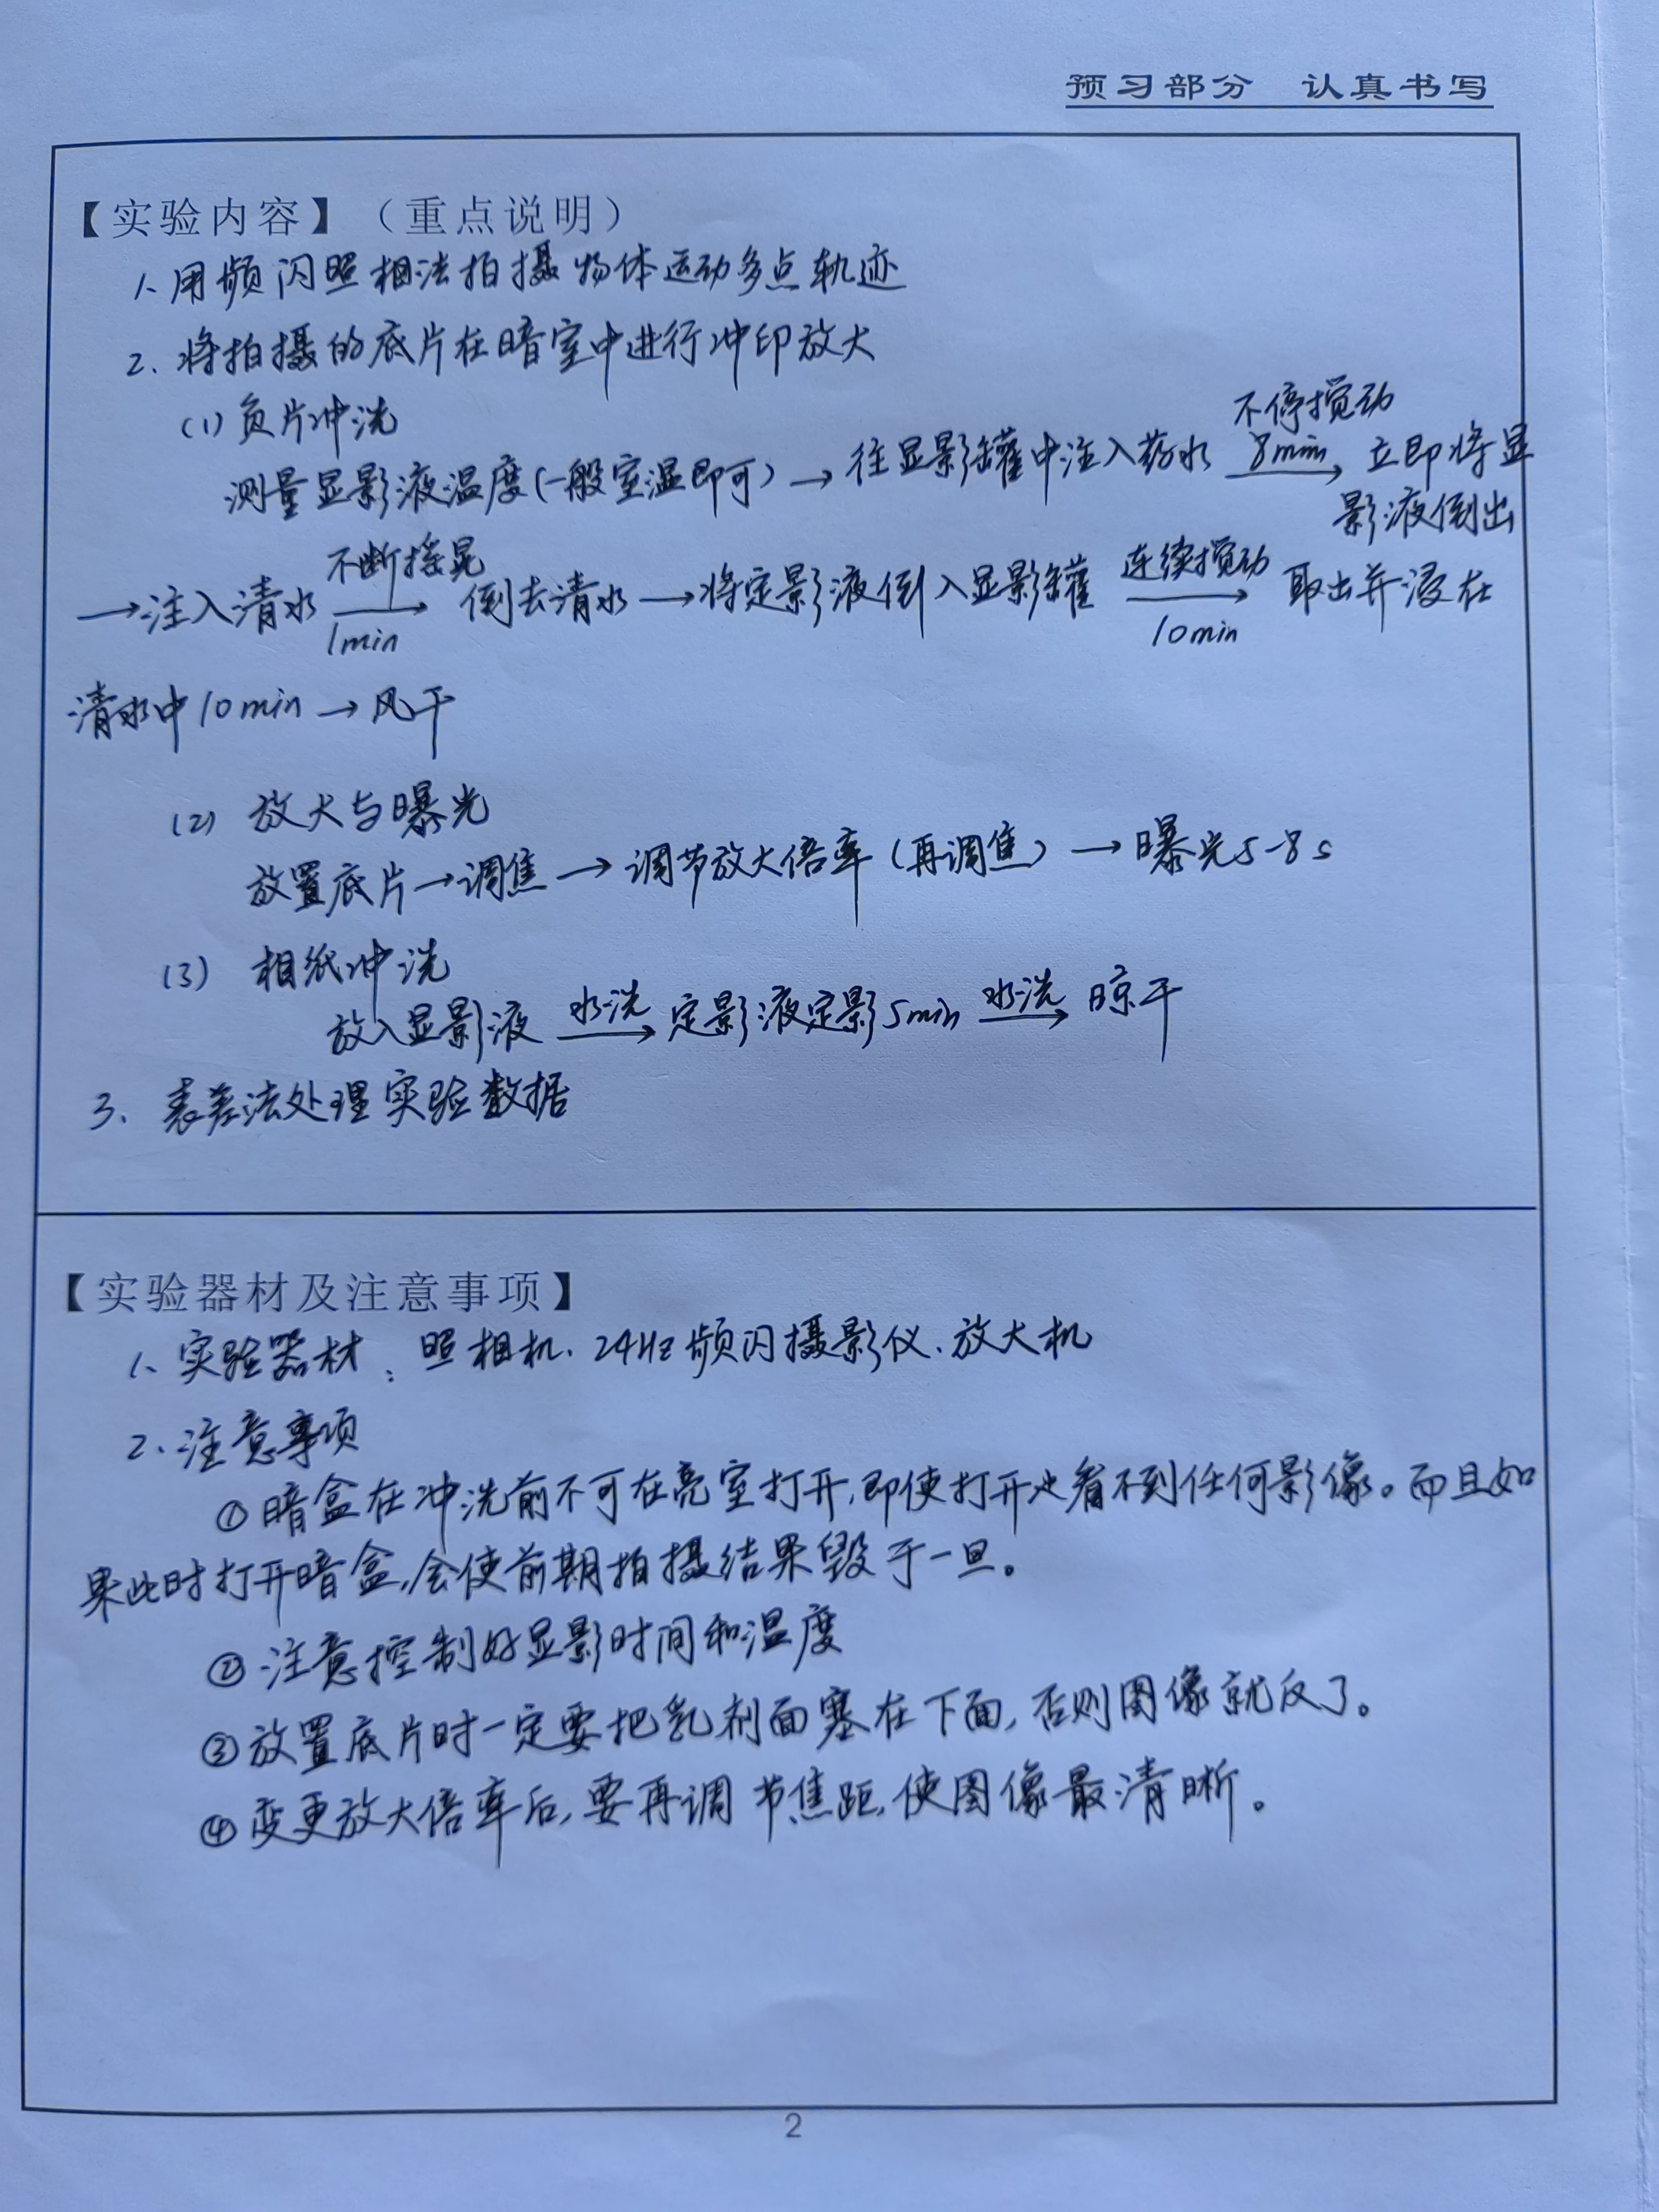 预习部分 认真书写
【实验内容】（重点说明）
1、用频闪照相法拍摄物体运动多点轨迹
2、将拍摄的底片在暗室中进行冲印放大
(1) 负片冲洗
测量显影液温度(一般室温即可) → 往显影罐中注入药水 不停搅动 8min → 立即将显
影液倒出
→ 注入清水 不断摇晃 1min → 倒去清水 → 将定影液倒入显影罐 连续搅动 10min → 取出并浸在
清水中10min → 风干
(2) 放大与曝光
放置底片 → 调焦 → 调节放大倍率（再调焦）→ 曝光5-8s
(3) 相纸冲洗
放入显影液 水洗 → 定影液定影5min 水洗 → 晾干
3、表差法处理实验数据
【实验器材及注意事项】
1、实验器材：照相机、24Hz频闪摄影仪、放大机
2、注意事项
①暗盒在冲洗前不可在亮室打开,即使打开也看不到任何影像。而且如
果此时打开暗盒,会使前期拍摄结果毁于一旦。
②注意控制好显影时间和温度
③放置底片时一定要把乳剂面塞在下面,否则图像就反了。
④变更放大倍率后,要再调节焦距,使图像最清晰。
2